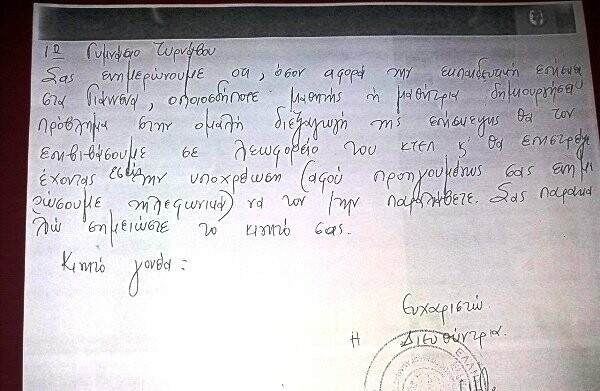 1ο Γυμνάσιο Τυρνάβου
Σας ενημερώνουμε οτι, όσον αφορά την εκπαιδευτική επίσκεψη
στα Γιάννενα, οποιοσδήποτε μαθητής ή μαθήτρια δημιουργήσει
πρόβλημα στην ομαλή διεξαγωγή της επίσκεψης θα τον
επιβιβάσουμε σε λεωφορείο του κτελ κ' θα επιστρέψει
έχοντας εσείς την υποχρέωση (αφού προηγουμένως σας ενημε
ρώσουμε τηλεφωνικά) να τον /την παραλάβετε. Σας παρακα
λώ σημειώστε το κινητό σας.
Κινητό γονέα:
Ευχαριστώ
Η Διευθύντρια.